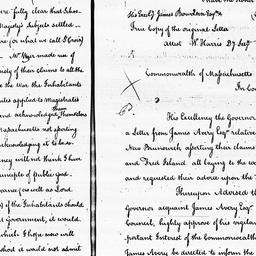 ere fully clear that Scho
Majesty's Subjects settled
re (or what we call St Croix)
Mr Wyer made use of
iety of their claims to all the
re the War the Inhabitants
ates applied to Magistrates
and acknowledged themselves
Massachusetts not aporting
acknowledging it to be so.
ency will not think I have
rinciple of public good.
conance; as well as Lord
of the Inhabitants should
d Government, it would
which I hope now will
hood it would not admit
His Excely James Bowdoin Esqr
True Copy of the original Letter
Attest W. Harris Dy Secy
Commonwealth of Massachusetts
In Co
His Excellency the Governor
a Letter from James Avery Esqr relative
New Brunswick asserting their claims
and Dred Island. all laying to the we
and requested their advice upon the
Thereupon Advised th
Governor acquaint James Avery Esqr
Council, highly approve of his vigilan
portant Interest of the Commonwealth
James Avery be directed to inform the